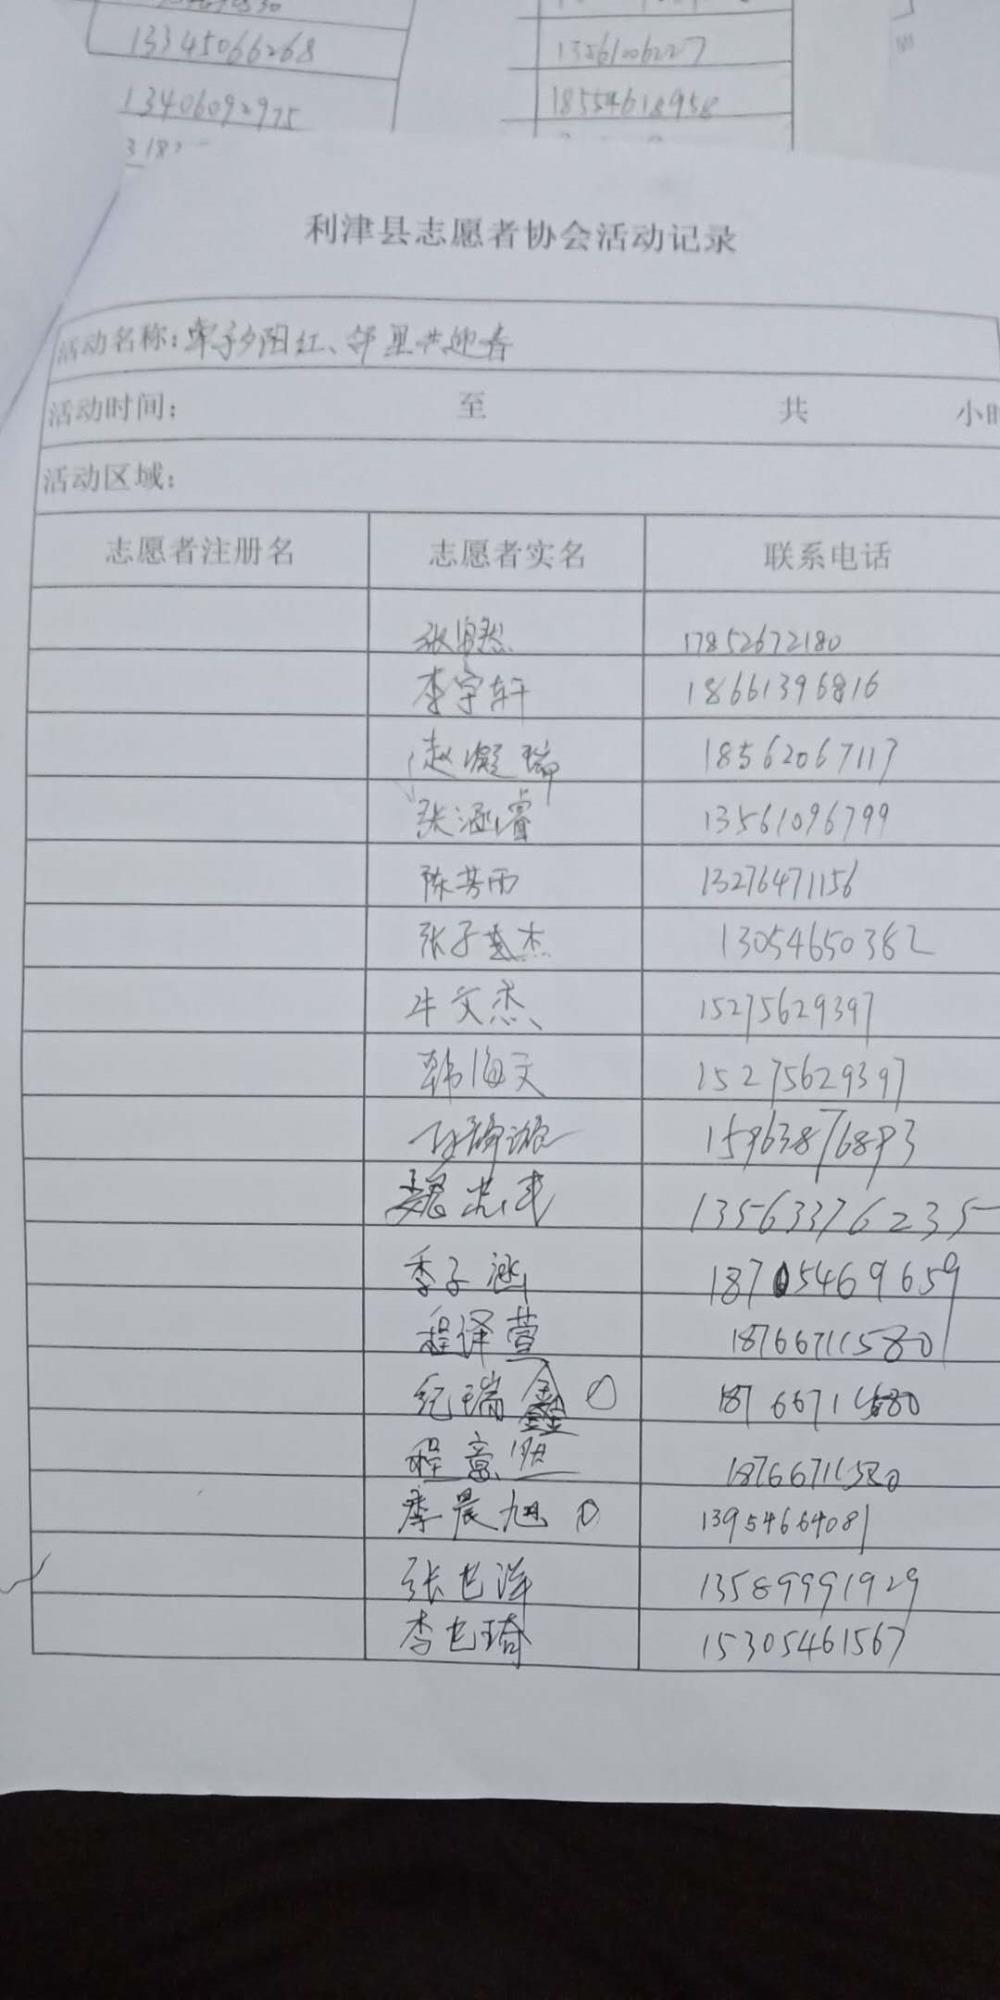 13345066268
13561006227
13406092975
18554618958
利津县志愿者协会活动记录
活动名称：牵手夕阳红、邻里共迎春
活动时间： 至 共 小时
活动区域：
志愿者注册名 志愿者实名 联系电话
17852672180
李宇轩 18661396816
赵凝瑞 18562067117
张涵睿 13561096799
陈芳雨 13276471156
13054650362
牛文杰 15275629397
韩海天 15275629397
15963876893
魏 13563376235
季子涵 18705469659
程译萱 18766711580
纪瑞鑫 18766711580
程意 18766711580
李晨旭 13954664081
张艺洋 13589991929
李艺琦 15305461567